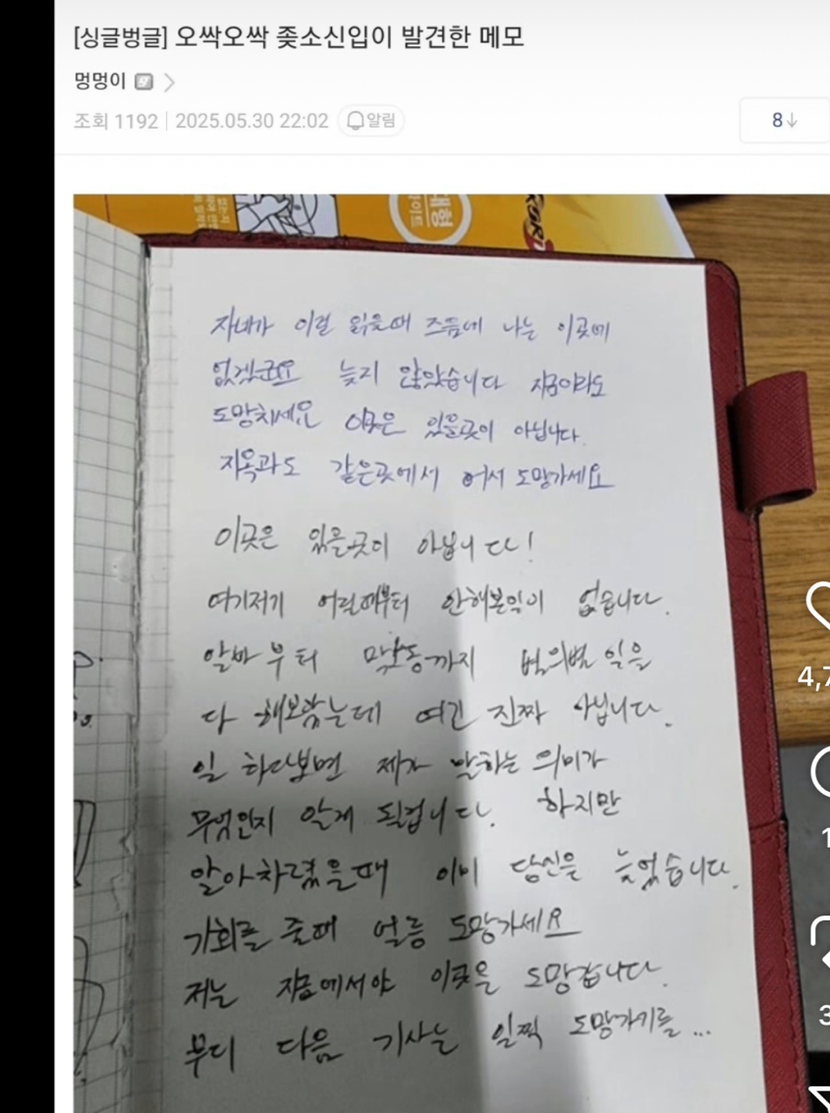 [싱글벙글] 오싹오싹 좆소신입이 발견한 메모
멍멍이
조회 1192 | 2025.05.30 22:02 알림
8↓
자네가 이럴 읽을때 즈음에 나는 이곳에
없겠군요 늦지 않았습니다 지금이라도
도망치세요 이곳은 있을곳이 아닙니다.
지옥과도 같은곳에서 어서 도망가세요
이곳은 있을곳이 아닙니다!
여기저기 어릴때부터 안해본일이 없습니다.
알바부터 막노동까지 별의별 일을
다 해보았는데 여긴 진짜 아닙니다.
일 하다보면 제가 말하는 의미가
무엇인지 알게 될겁니다. 하지만
알아차렸을때 이미 당신은 늦었습니다.
기회를 줄때 얼릉 도망가세요
저는 지금에서야 이곳을 도망갑니다.
부디 다음 기사는 일찍 도망가기를...
4,7
1
3